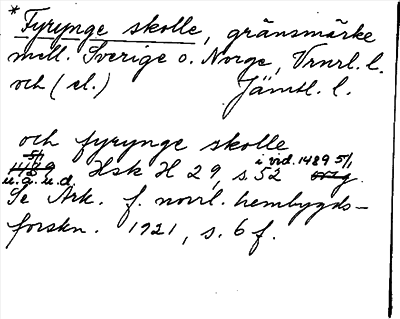 * Fyrynge skolle, gränsmärke
mell. Sverige o. Norge, Vrnrl. l.
och (el.) Jämtl. l.
och fyrynge skolle
5/1 i vid. 1489 5/1
1489 Hsk H 29, s 52
u. g. u. d.
Se Ark. f. norrl. hembygds-
forskn. 1921, s. 6 f.